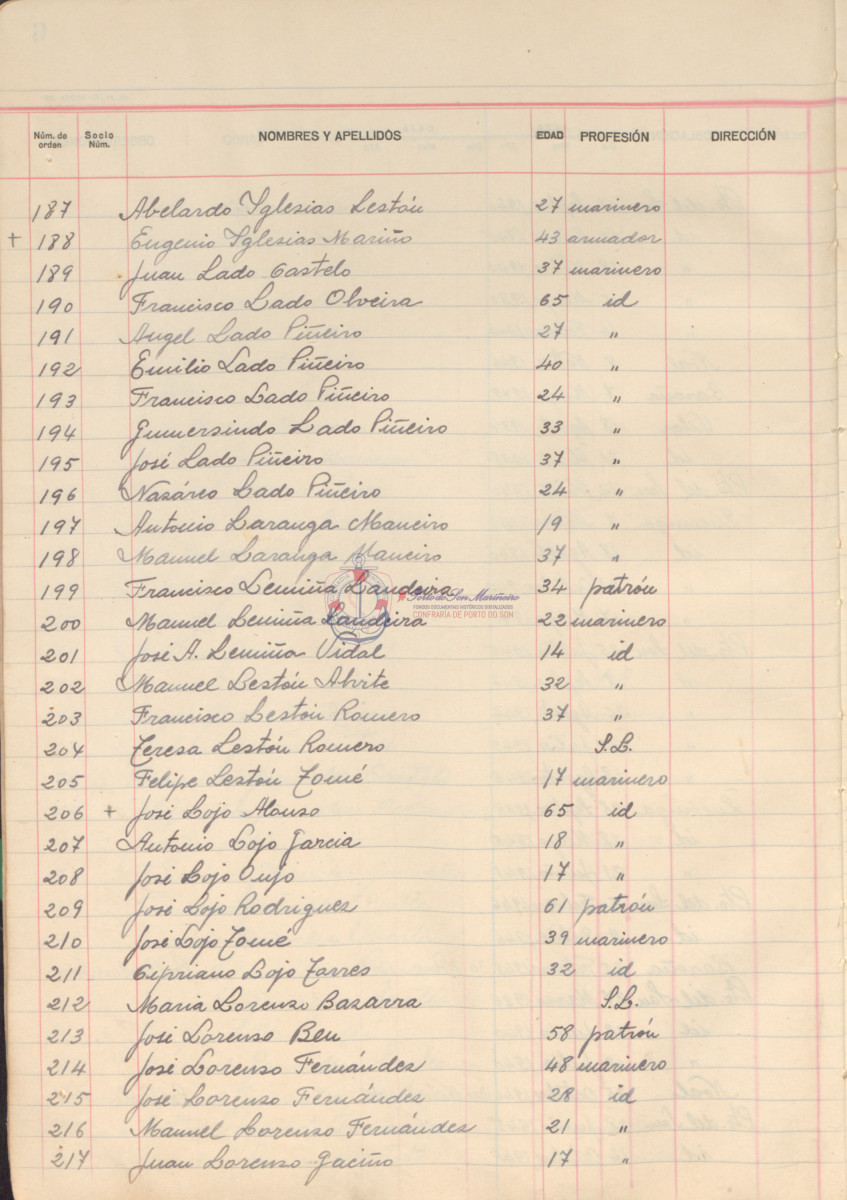 Núm. de orden Socio Núm. NOMBRES Y APELLIDOS EDAD PROFESIÓN DIRECCIÓN
187 Abelardo Yglesias Lestón 27 marinero
+ 188 Eugenio Yglesias Mariño 43 armador
189 Juan Lado Castelo 37 marinero
190 Francisco Lado Olveira 65 id
191 Angel Lado Piñeiro 27 "
192 Emilio Lado Piñeiro 40 "
193 Francisco Lado Piñeiro 24 "
194 Gumersindo Lado Piñeiro 33 "
195 José Lado Piñeiro 37 "
196 Nasáreo Lado Piñeiro 24 "
197 Antonio Laranga Maneiro 19 "
198 Manuel Laranga Maneiro 37 "
199 Francisco Lemiña Landeira 34 patrón
Porto do Son Mariñeiro
FONDOS DOCUMENTAIS HISTÓRICOS DIXITALIZADOS
CONFRARÍA DE PORTO DO SON
200 Manuel Lemiña Landeira 22 marinero
201 José A. Lemiña Vidal 14 id
202 Manuel Lestón Alvite 32 "
203 Francisco Lestón Romero 37 "
204 Teresa Lestón Romero S.L.
205 Felipe Lestón Tomé 17 marinero
206 + José Lojo Alonso 65 id
207 Antonio Lojo Garcia 18 "
208 José Lojo Oujo 17 "
209 José Lojo Rodriguez 61 patrón
210 José Lojo Tomé 39 marinero
211 Cipriano Lojo Torres 32 id
212 Maria Lorenzo Bazarra S.L.
213 José Lorenzo Ben 58 patrón
214 José Lorenzo Fernández 48 marinero
215 José Lorenzo Fernández 28 id
216 Manuel Lorenzo Fernández 21 "
217 Juan Lorenzo Gaciño 17 "